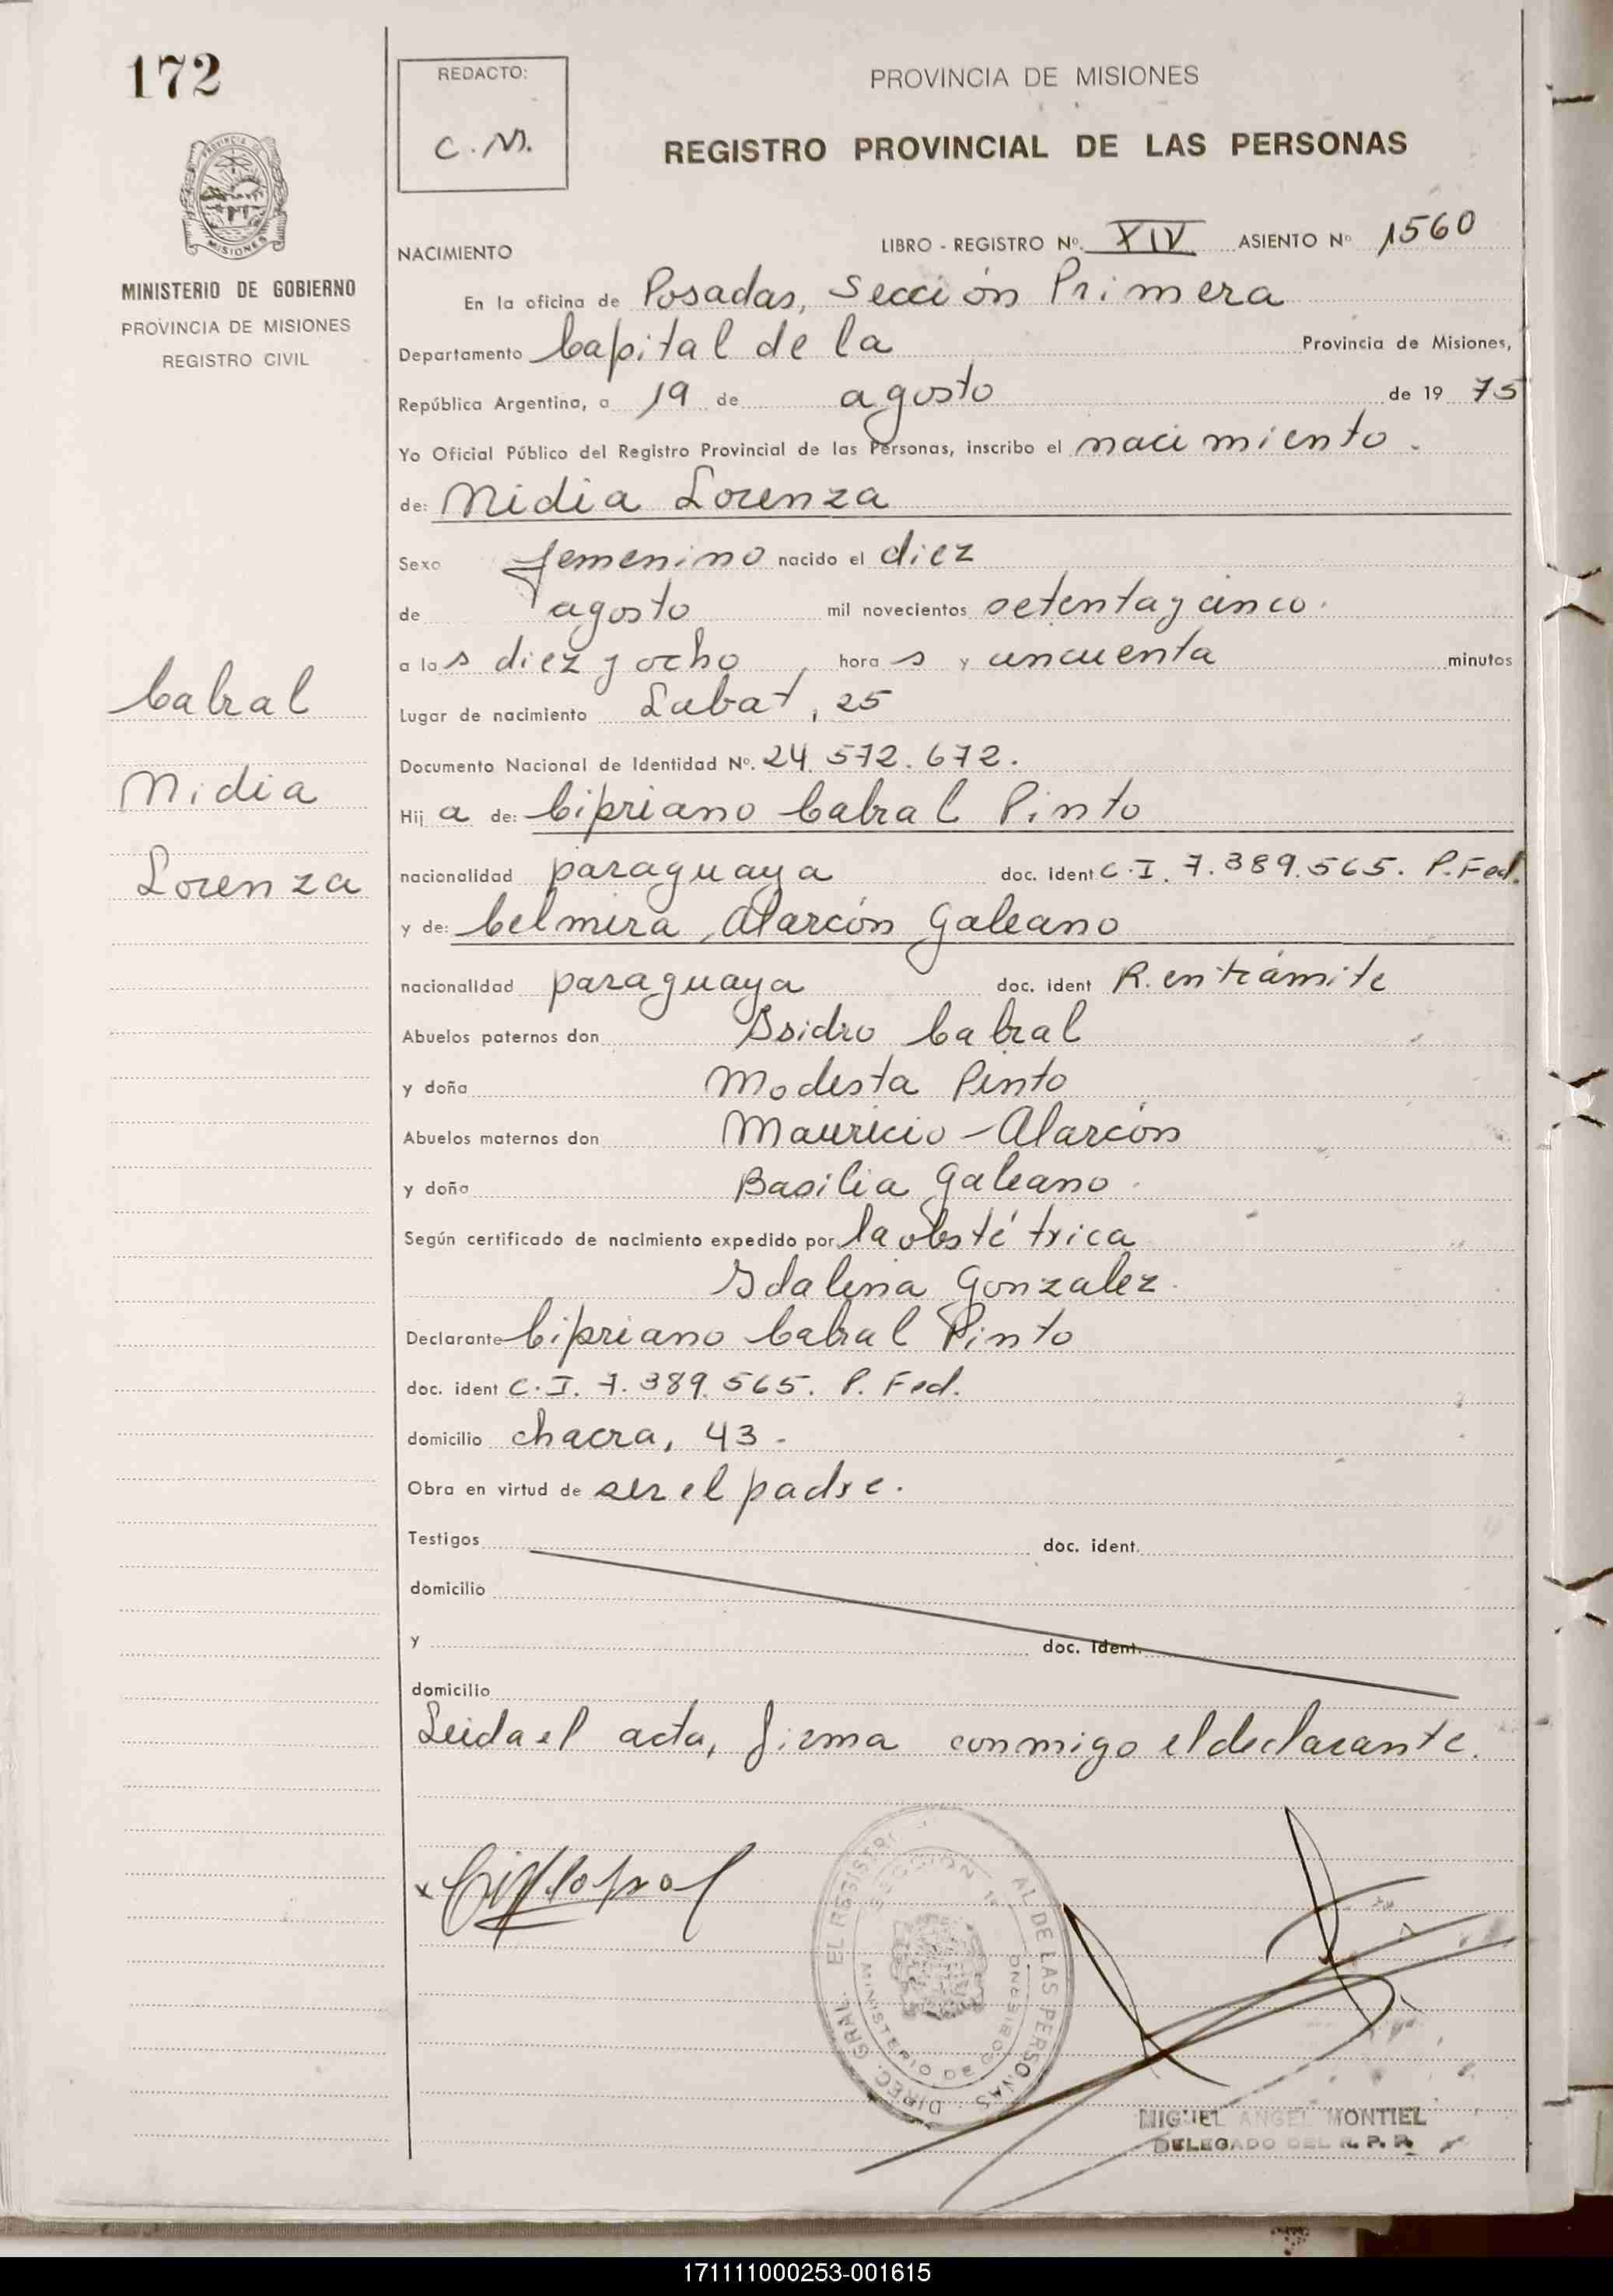 172
REDACTO:
C.M.
PROVINCIA DE MISIONES
REGISTRO PROVINCIAL DE LAS PERSONAS
MINISTERIO DE GOBIERNO
PROVINCIA DE MISIONES
REGISTRO CIVIL
NACIMIENTO
LIBRO - REGISTRO Nº. XIV ASIENTO Nº 1560
En la oficina de Posadas, Sección Primera
Departamento Capital de la Provincia de Misiones,
República Argentina, a 19 de agosto de 19 75
Yo Oficial Público del Registro Provincial de las Personas, inscribo el nacimiento.
de: Nidia Lorenza
Sexo femenino nacido el diez
de agosto mil novecientos setenta y cinco.
a las diez y ocho horas y cincuenta minutos
Lugar de nacimiento Labat, 25
Documento Nacional de Identidad Nº. 24.572.672.
Hija de: Cipriano Cabral Pinto
nacionalidad paraguaya doc. ident C.I. 7.389.565. P.Fed.
y de: Celmira Alarcón Galeano
nacionalidad paraguaya doc. ident R. en trámite
Abuelos paternos don Isidro Cabral
y doña Modesta Pinto
Abuelos maternos don Mauricio Alarcón
y doña Basilia Galeano.
Según certificado de nacimiento expedido por la obstétrica
Idalina Gonzalez.
Declarante Cipriano Cabral Pinto
doc. ident C.I. 7.389.565. P. Fed.
domicilio chacra, 43.
Obra en virtud de ser el padre.
Testigos doc. ident.
domicilio
y doc. ident.
domicilio
Leida el acta, firma conmigo el declarante.
Cabral
Nidia
Lorenza
DIREC. GRAL. EL REGISTR AL DE LAS PERSONAS
SECCION 1ª
MINISTERIO DE GOBIERNO
MIGUEL ANGEL MONTIEL
DELEGADO DEL R. P. P.
171111000253-001615